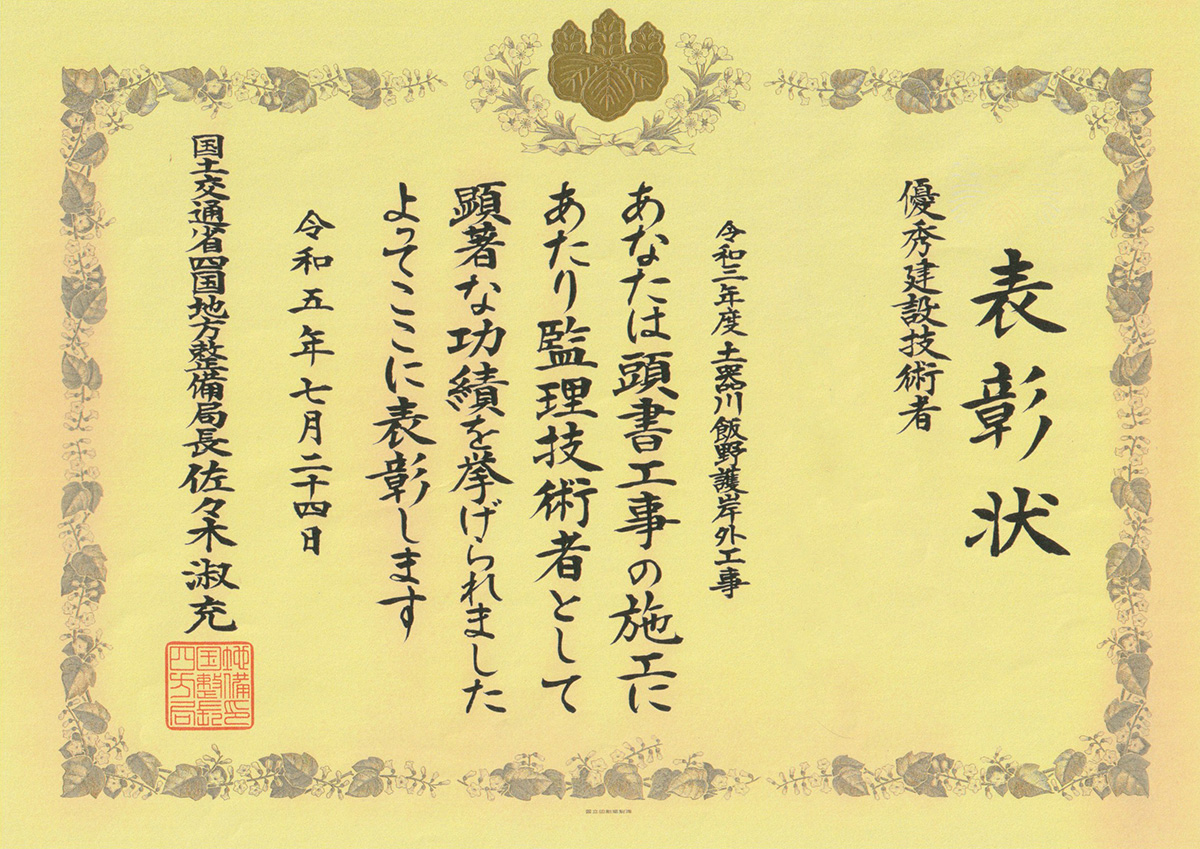 表彰状
優秀建設技術者
令和三年度 土器川飯野護岸外工事
あなたは頭書工事の施工に
あたり監理技術者として
顕著な功績を挙げられました
よってここに表彰します
令和五年七月二十四日
国土交通省四国地方整備局長 佐々木淑充
地備印
国整長
四方局
国立印刷局製造